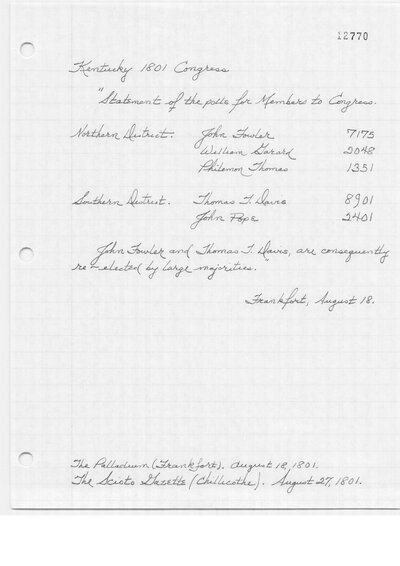 12770
Kentucky 1801 Congress
"Statement of the polls for Members to Congress.
Northern District. John Fowler 7175
William Garard 2048
Philemon Thomas 1351
Southern District. Thomas T. Davis 8901
John Pope 2401
John Fowler and Thomas T. Davis, are consequently
re-elected by large majorities."
Frankfort, August 18.
The Palladium (Frankfort). August 18, 1801.
The Scioto Gazette (Chillicothe). August 27, 1801.